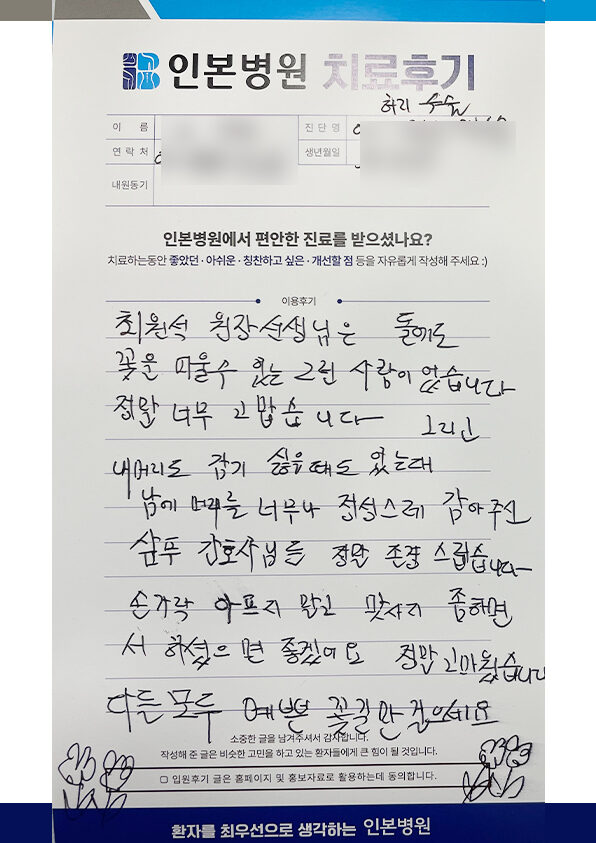 인본병원 치료후기
허리 수술
이 름
진 단 명
연 락 처
생년월일
내원동기
인본병원에서 편안한 진료를 받으셨나요?
치료하는동안 좋았던 · 아쉬운 · 칭찬하고 싶은 · 개선할 점 등을 자유롭게 작성해 주세요 :)
이용후기
최원석 원장선생님은 돌에도
꽃을 피울수 있는 그런 사람이었습니다
정말 너무 고맙습니다 그리고
내머리도 감기 싫을때도 있는데
남에 머리를 너무나 정성스레 감아주신
샴푸 간호사님들 정말 존경 스럽습니다
손가락 아프지 말고 맛사지 좀하면
서 하셨으면 좋겠어요 정말고마웠습니다
다들모두 예쁜 꽃길만 걸으세요
소중한 글을 남겨주셔서 감사합니다.
작성해 준 글은 비슷한 고민을 하고 있는 환자들에게 큰 힘이 될 것입니다.
입원후기 글은 홈페이지 및 홍보자료로 활용하는데 동의합니다.
환자를 최우선으로 생각하는 인본병원